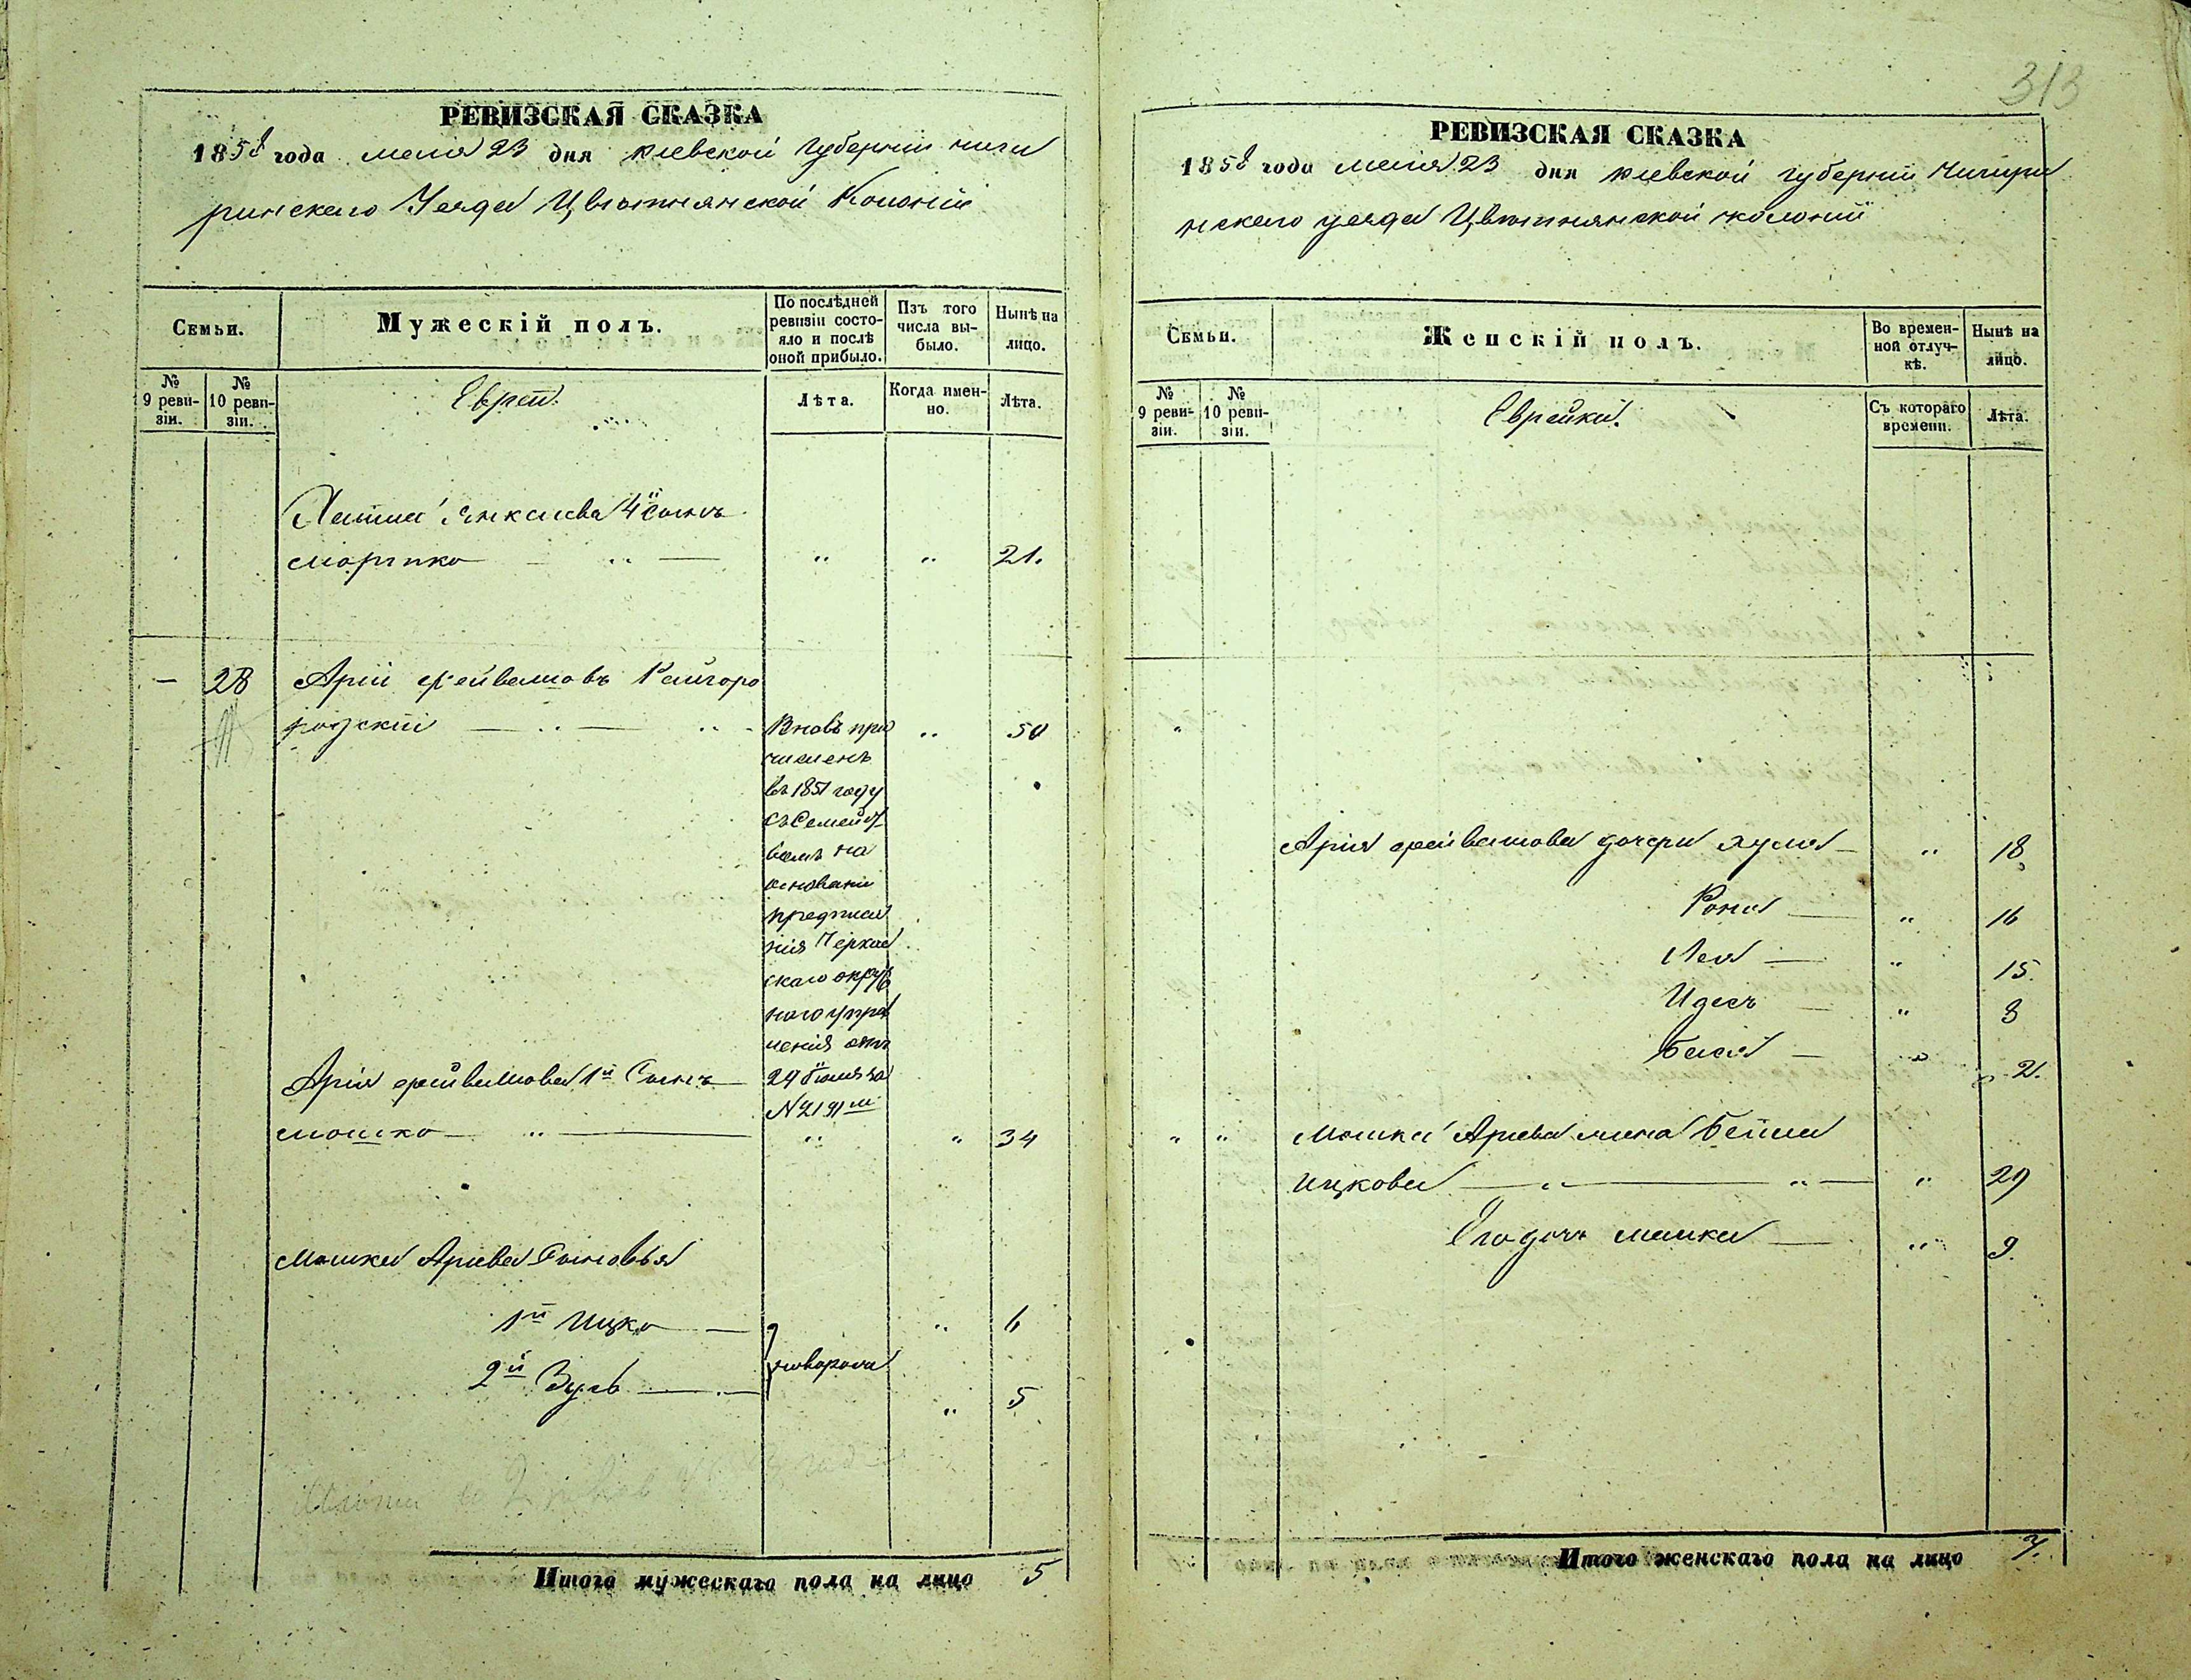 313
РЕВИЗСКАЯ СКАЗКА
1858 года мая 23 дня Киевской Губернии Чиги
ринского Уезда Цветнянской Колонии
Семьи.
Мужескій полъ.
По послѣдней ревизіи состо-
яло и послѣ
оной прибыло.
Изъ того
числа вы-
было.
Нынѣ на
лицо.
№
9 реви-
зіи.
№
10 реви-
зіи.
Евреи.
Лѣта.
Когда имен-
но.
Лѣта.
Янкелева 4й сынъ
" " 21.
— 28 Арій Фейвешовъ Райгоро
родскій — " — " Вновь при " 50
численъ
въ 1851 году
съ Семейст
вомъ на
основани
предписа
нія Черка
скаго окруж
ного упра
ления отъ
24 Июля за
№ 2191м
Арія Фейвешова 1й Сынъ
Мошко — " — " " 34
Мошки Ариева Сыновья
1й Ицко — " 6
2й Зусь — " 5
Итого мужескаго пола на лицо 5
РЕВИЗСКАЯ СКАЗКА
1858 года мая 23 дня Киевской губернии Чигири
нского уезда Цветнянской колонии
Семьи.
Женскій полъ.
Во времен-
ной отлуч-
кѣ.
Нынѣ на
лицо.
№
9 реви-
зіи.
№
10 реви-
зіи.
Еврейки.
Съ котораго
времени.
Лѣта.
"
Арія Фейвешова дочери — " 18
— " 16
Лея — " 15.
Идесъ — " 8
Бася — " 2.
" " Мошки Ариева жена Бейла
Ицкова — " — " — " 29
Его дочь — " 9.
Итого женскаго пола на лицо 7.